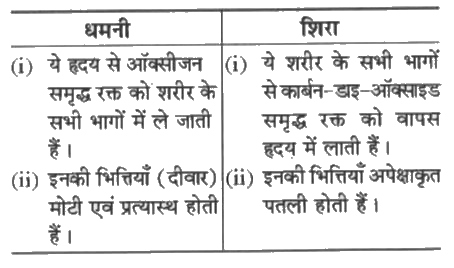 धमनी
शिरा
(i) ये हृदय से ऑक्सीजन
समृद्ध रक्त को शरीर के
सभी भागों में ले जाती
हैं।
(ii) इनकी भित्तियाँ (दीवार)
मोटी एवं प्रत्यास्थ होती
हैं।
(i) ये शरीर के सभी भागों
से कार्बन-डाइ-ऑक्साइड
समृद्ध रक्त को वापस
हृदय में लाती हैं।
(ii) इनकी भित्तियाँ अपेक्षाकृत
पतली होती हैं।